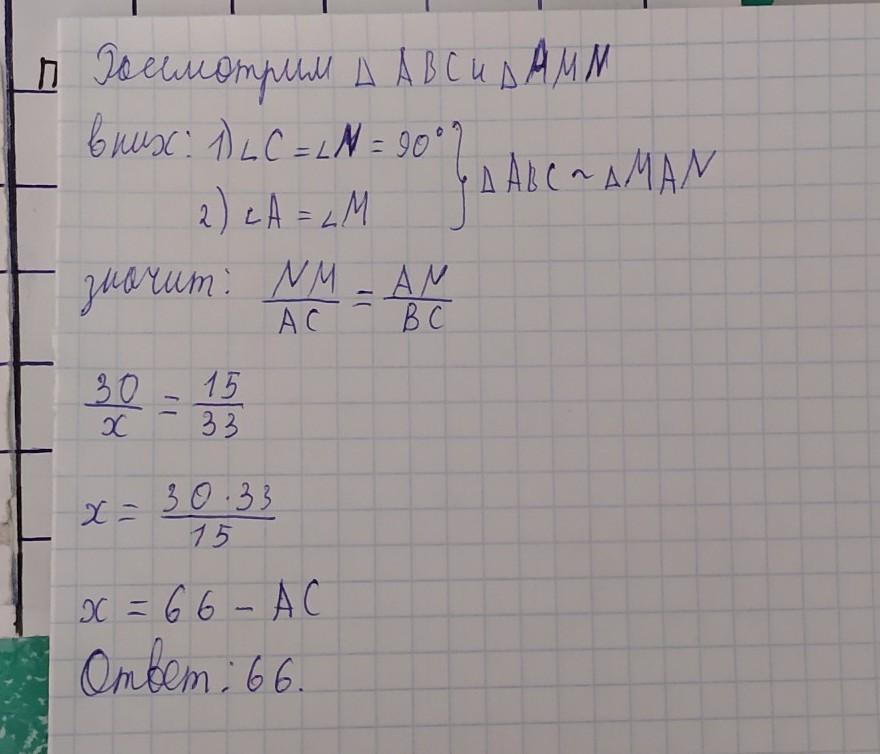 П
Рассмотрим △ ABC и △ AMN
в них: 1) ∠C = ∠N = 90° } △ ABC ~ △ MAN
2) ∠A = ∠M
значит: NM/AC = AN/BC
30/x = 15/33
x = 30·33/15
x = 66 – AC
Ответ: 66.